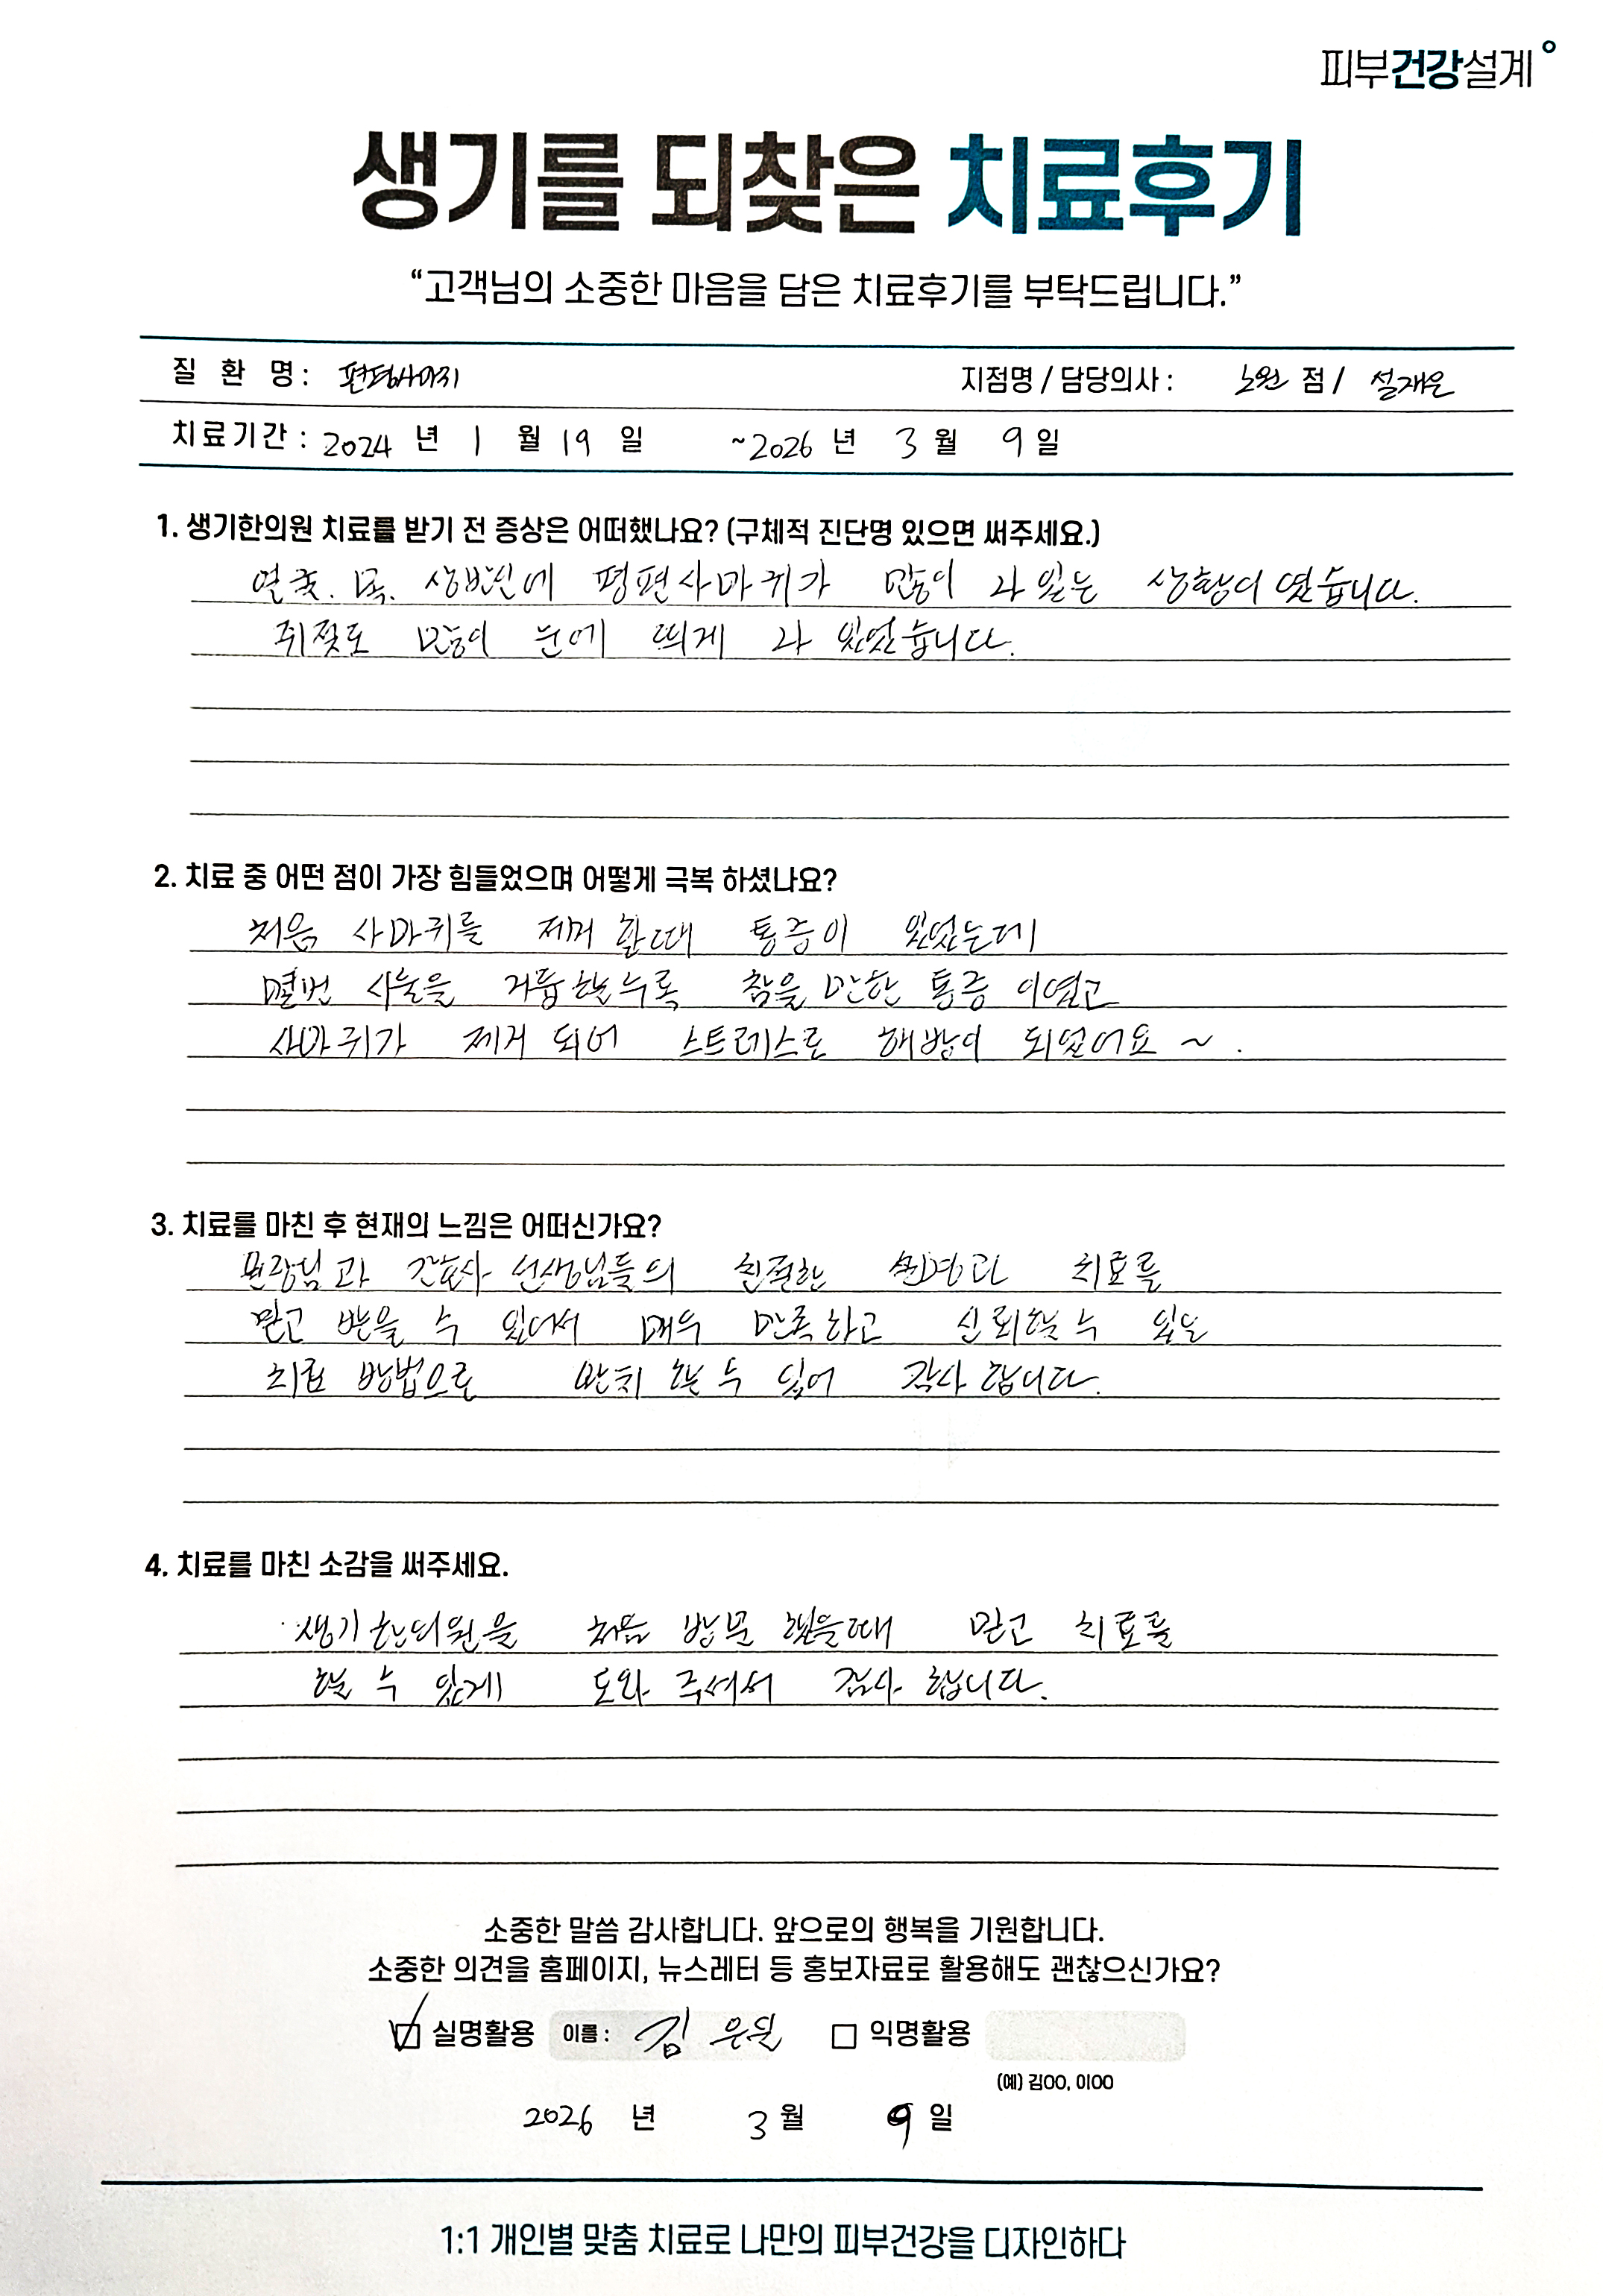 피부건강설계
생기를 되찾은 치료후기
“고객님의 소중한 마음을 담은 치료후기를 부탁드립니다.”
질 환 명 : 편평사마귀 지점명 / 담당의사 : 노원 점 / 설재은
치료기간 : 2024 년 1 월 19 일 ~2026 년 3 월 9 일
1. 생기한의원 치료를 받기 전 증상은 어떠했나요? (구체적 진단명 있으면 써주세요.)
얼굴. 목. 상반신에 평편사마귀가 많이 나 있는 상황이 였습니다.
쥐젖도 많이 눈에 띄게 나 있었습니다.
2. 치료 중 어떤 점이 가장 힘들었으며 어떻게 극복 하셨나요?
처음 사마귀를 제거 할때 통증이 있었는데
몇번 시술을 거듭할수록 참을 만한 통증 이였고
사마귀가 제거 되어 스트레스로 해방이 되었어요 ~ .
3. 치료를 마친 후 현재의 느낌은 어떠신가요?
원장님과 간호사 선생님들의 친절한 설명과 치료를
믿고 받을 수 있어서 매우 만족하고 신뢰할 수 있는
치료 방법으로 완치 할 수 있어 감사 합니다.
4. 치료를 마친 소감을 써주세요.
생기한의원을 처음 방문 했을때 믿고 치료를
할 수 있게 도와 주셔서 감사 합니다.
소중한 말씀 감사합니다. 앞으로의 행복을 기원합니다.
소중한 의견을 홈페이지, 뉴스레터 등 홍보자료로 활용해도 괜찮으신가요?
실명활용 이름 : 김 은 익명활용
(예) 김OO, 이OO
2026 년 3 월 9 일
1:1 개인별 맞춤 치료로 나만의 피부건강을 디자인하다